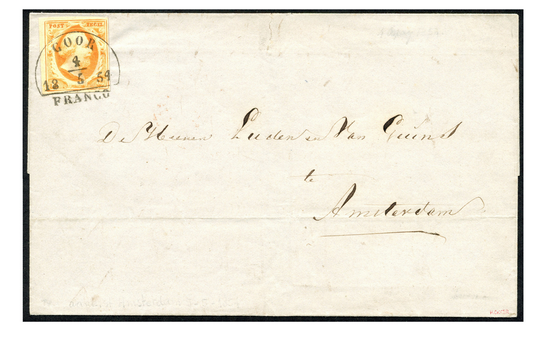 POST ZEGEL
GOOR
4
18 5 54
FRANCO
De Heeren Luden en Van Geuns
te
Amsterdam